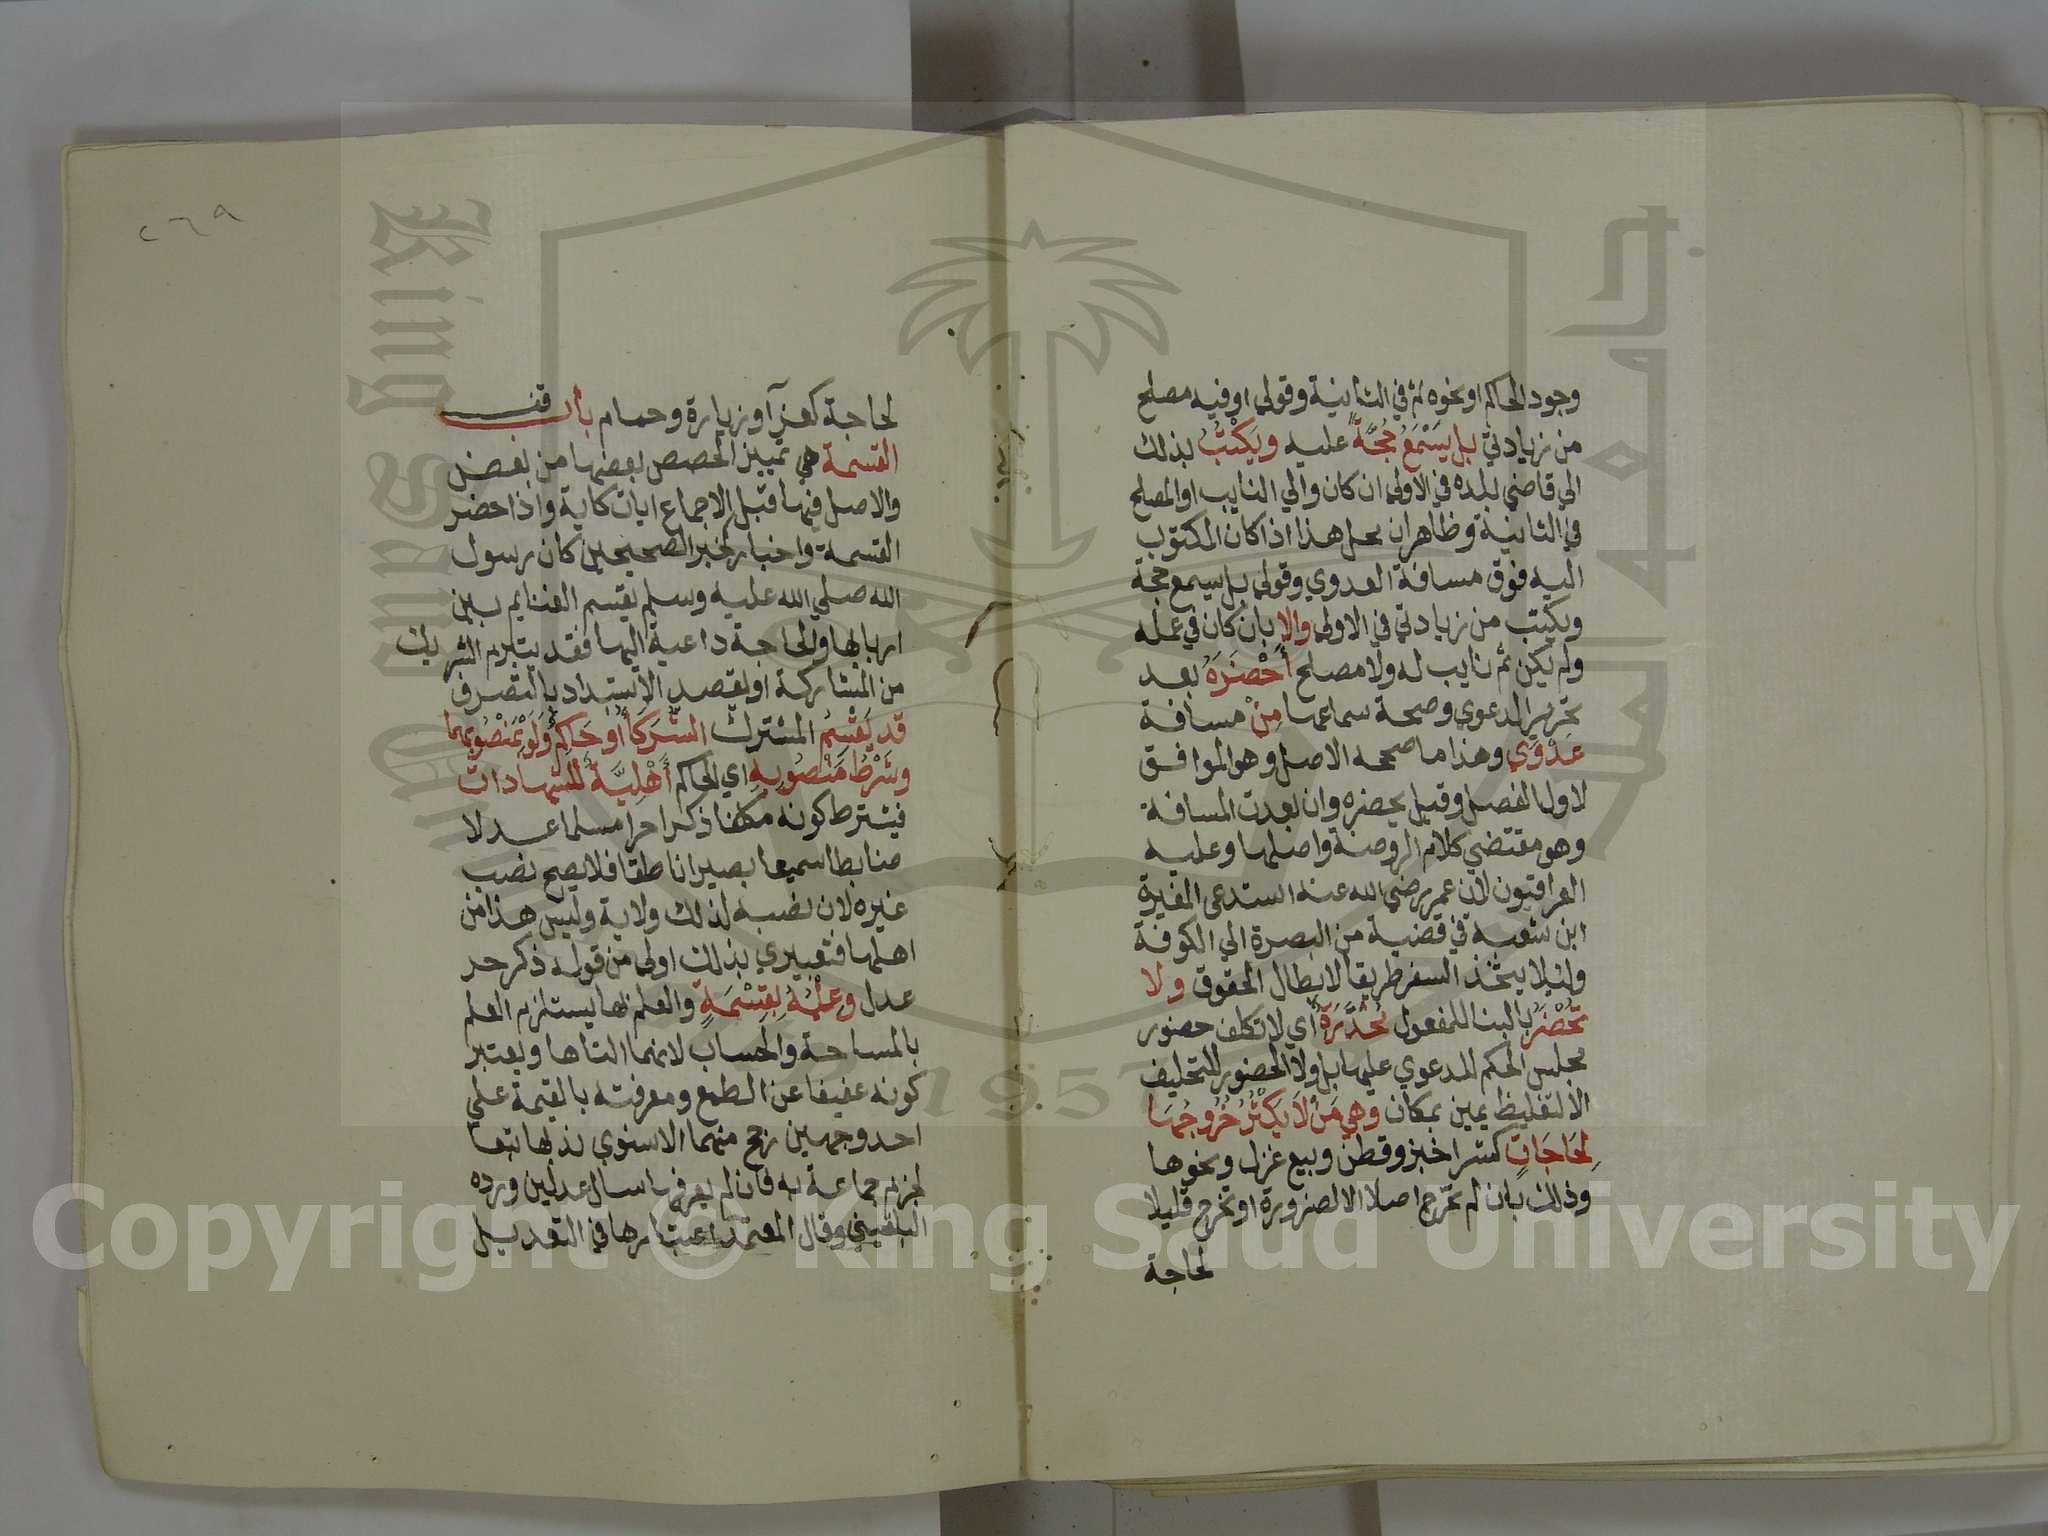 وجود الحاكم او نحوه ثم في الثانية وقولي او فيه مصلح
من زيادتي بل يَسْمَعُ حُجَّةً عليه ويَكْتُبُ بذلك
الي قاضي بلده في الاولي ان كان والي النايب او المصلح
في الثانية وظاهر ان محل هذا اذا كان المكتوب
اليه فوق مسافة العدوي وقولي بل يسمع حجة
ويكتب من زيادتي في الاولي والا بان كان في عمله
ولم يكن ثم نايب له ولا مصلح أَحْضَرَهُ بعد
تحرير الدعوي وصحة سماعها مِنْ مسافة
عَدْوَي وهذا ما صححه الاصل وهو الموافق
لاول الفصل وقيل يحضره وان بعدت المسافة
وهو مقتضي كلام الروضة واصلها وعليه
العراقيون لان عمر رضي الله عنه استدعي المغيرة
ابن شعبة في قضية من البصرة الي الكوفة
وليلا يتخذ السفر طريقا لابطال الحقوق ولا
تُحْضَرُ بالبنا للمفعول مُخَدَّرَةٌ اي لا تكلف حضور
مجلس الحكم للدعوي عليها بل ولا الحضور للتحليف
الا لتغليظ يمين بمكان وهي مَنْ لَا يَكْثُرُ خُرُوجُهَا
لِحَاجَاتٍ كشرا خبز وقطن وبيع غزل ونحوها
وذلك بان لم تخرج اصلا الا لضرورة او تخرج قليلا
لحاجة
٢٦٩
لحاجة كعزآ وزيارة وحمام باب
القسمة هي تمييز الحصص بعضها من بعض
والاصل فيها قبل الاجماع ايات كاية واذا حضر
القسمة واخبار كخبر الصحيحين كان رسول
الله صلي الله عليه وسلم يقسم الغنايم بين
اربابها والحاجة داعية اليها فقد يتبرم الشريك
من المشاركة او يقصد الاستبداد بالتصرف
قد يَقْسِمُ المشترك الشُّرَكَا أَوْ حَاكِمٌ وَلَوْ بِمَنْصُوبِهِمَا
وشَرْطُ مَنْصُوبِهِ اي الحاكم أَهْلِيَّةٌ للشهادات
فيشترط كونه مكلفا ذكرا حرا مسلما عدلا
ضابطا سميعا بصيرا ناطقا فلا يصح نصب
غيره لان نصبه لذلك ولاية وليس هذا من
اهلها فتعبيري بذلك اولي من قوله ذكر حر
عدل وعِلْمُهُ بِقِسْمَةٍ والعلم بها يستلزم العلم
بالمساحة والحساب لانهما التاها ويعتبر
كونه عفيفا عن الطمع ومعرفته بالقيمة علي
احد وجهين رجح منهما الاسنوي ندبها تبعا
لجزم جماعة به فان لم يعرفها سال عدلين ورده
البلقيني وقال المعتمد اعتبارها في التعديل
Copyright © King Saud University
King Saud University
جامعة الملك سعود
1957